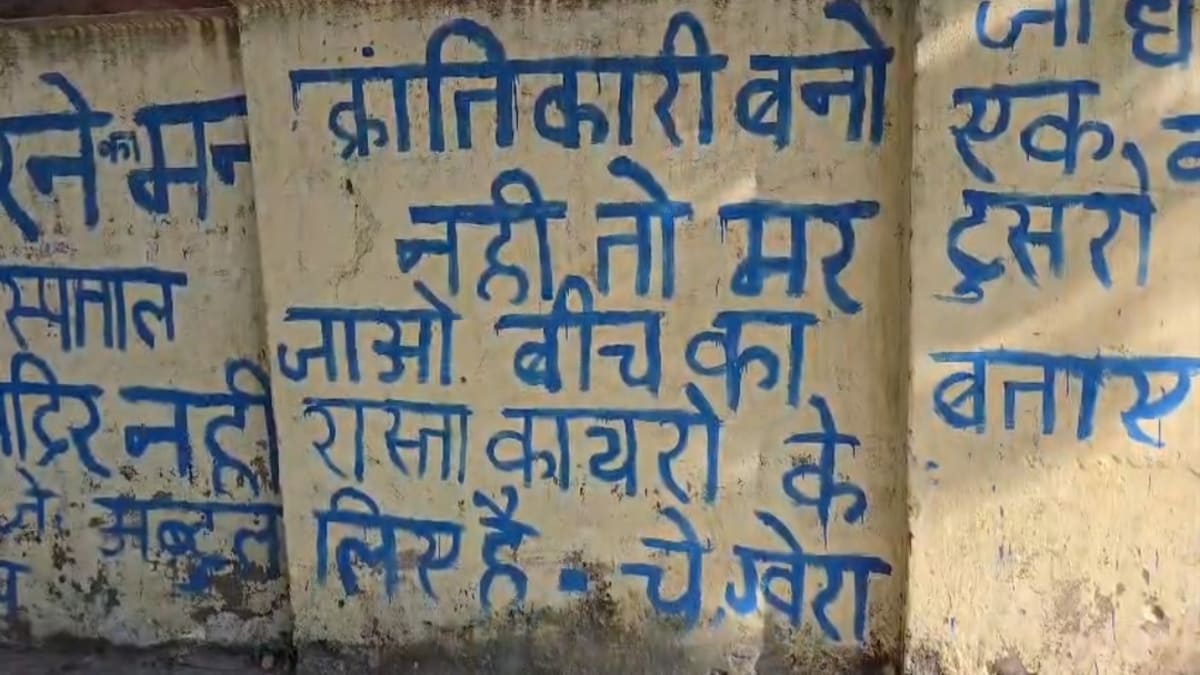 क्रांतिकारी बनो
नही तो मर
जाओ बीच का
रास्ता कायरो के
लिए है - चे ग्वेरा
रने का मन
स्पताल
नही
अब्दुल
एक
दुसरो
बताए